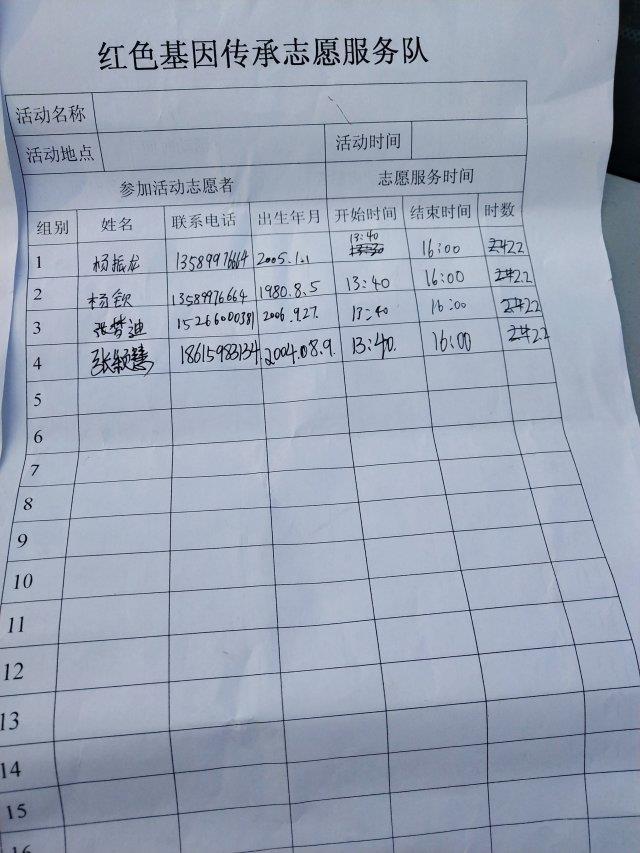 红色基因传承志愿服务队
活动名称
活动地点 活动时间
参加活动志愿者 志愿服务时间
组别 姓名 联系电话 出生年月 开始时间 结束时间 时数
1 杨振龙 13589976664 2005.1.1 13:40 16:00 2.2
2 杨钦 13589976664 1980.8.5 13:40 16:00 2.2
3 张梦迪 15266000381 2006.9.27. 13:40 16:00 2.2
4 张颖慧 18615983134 2004.08.9. 13:40. 16:00 2.2
5
6
7
8
9
10
11
12
13
14
15
16